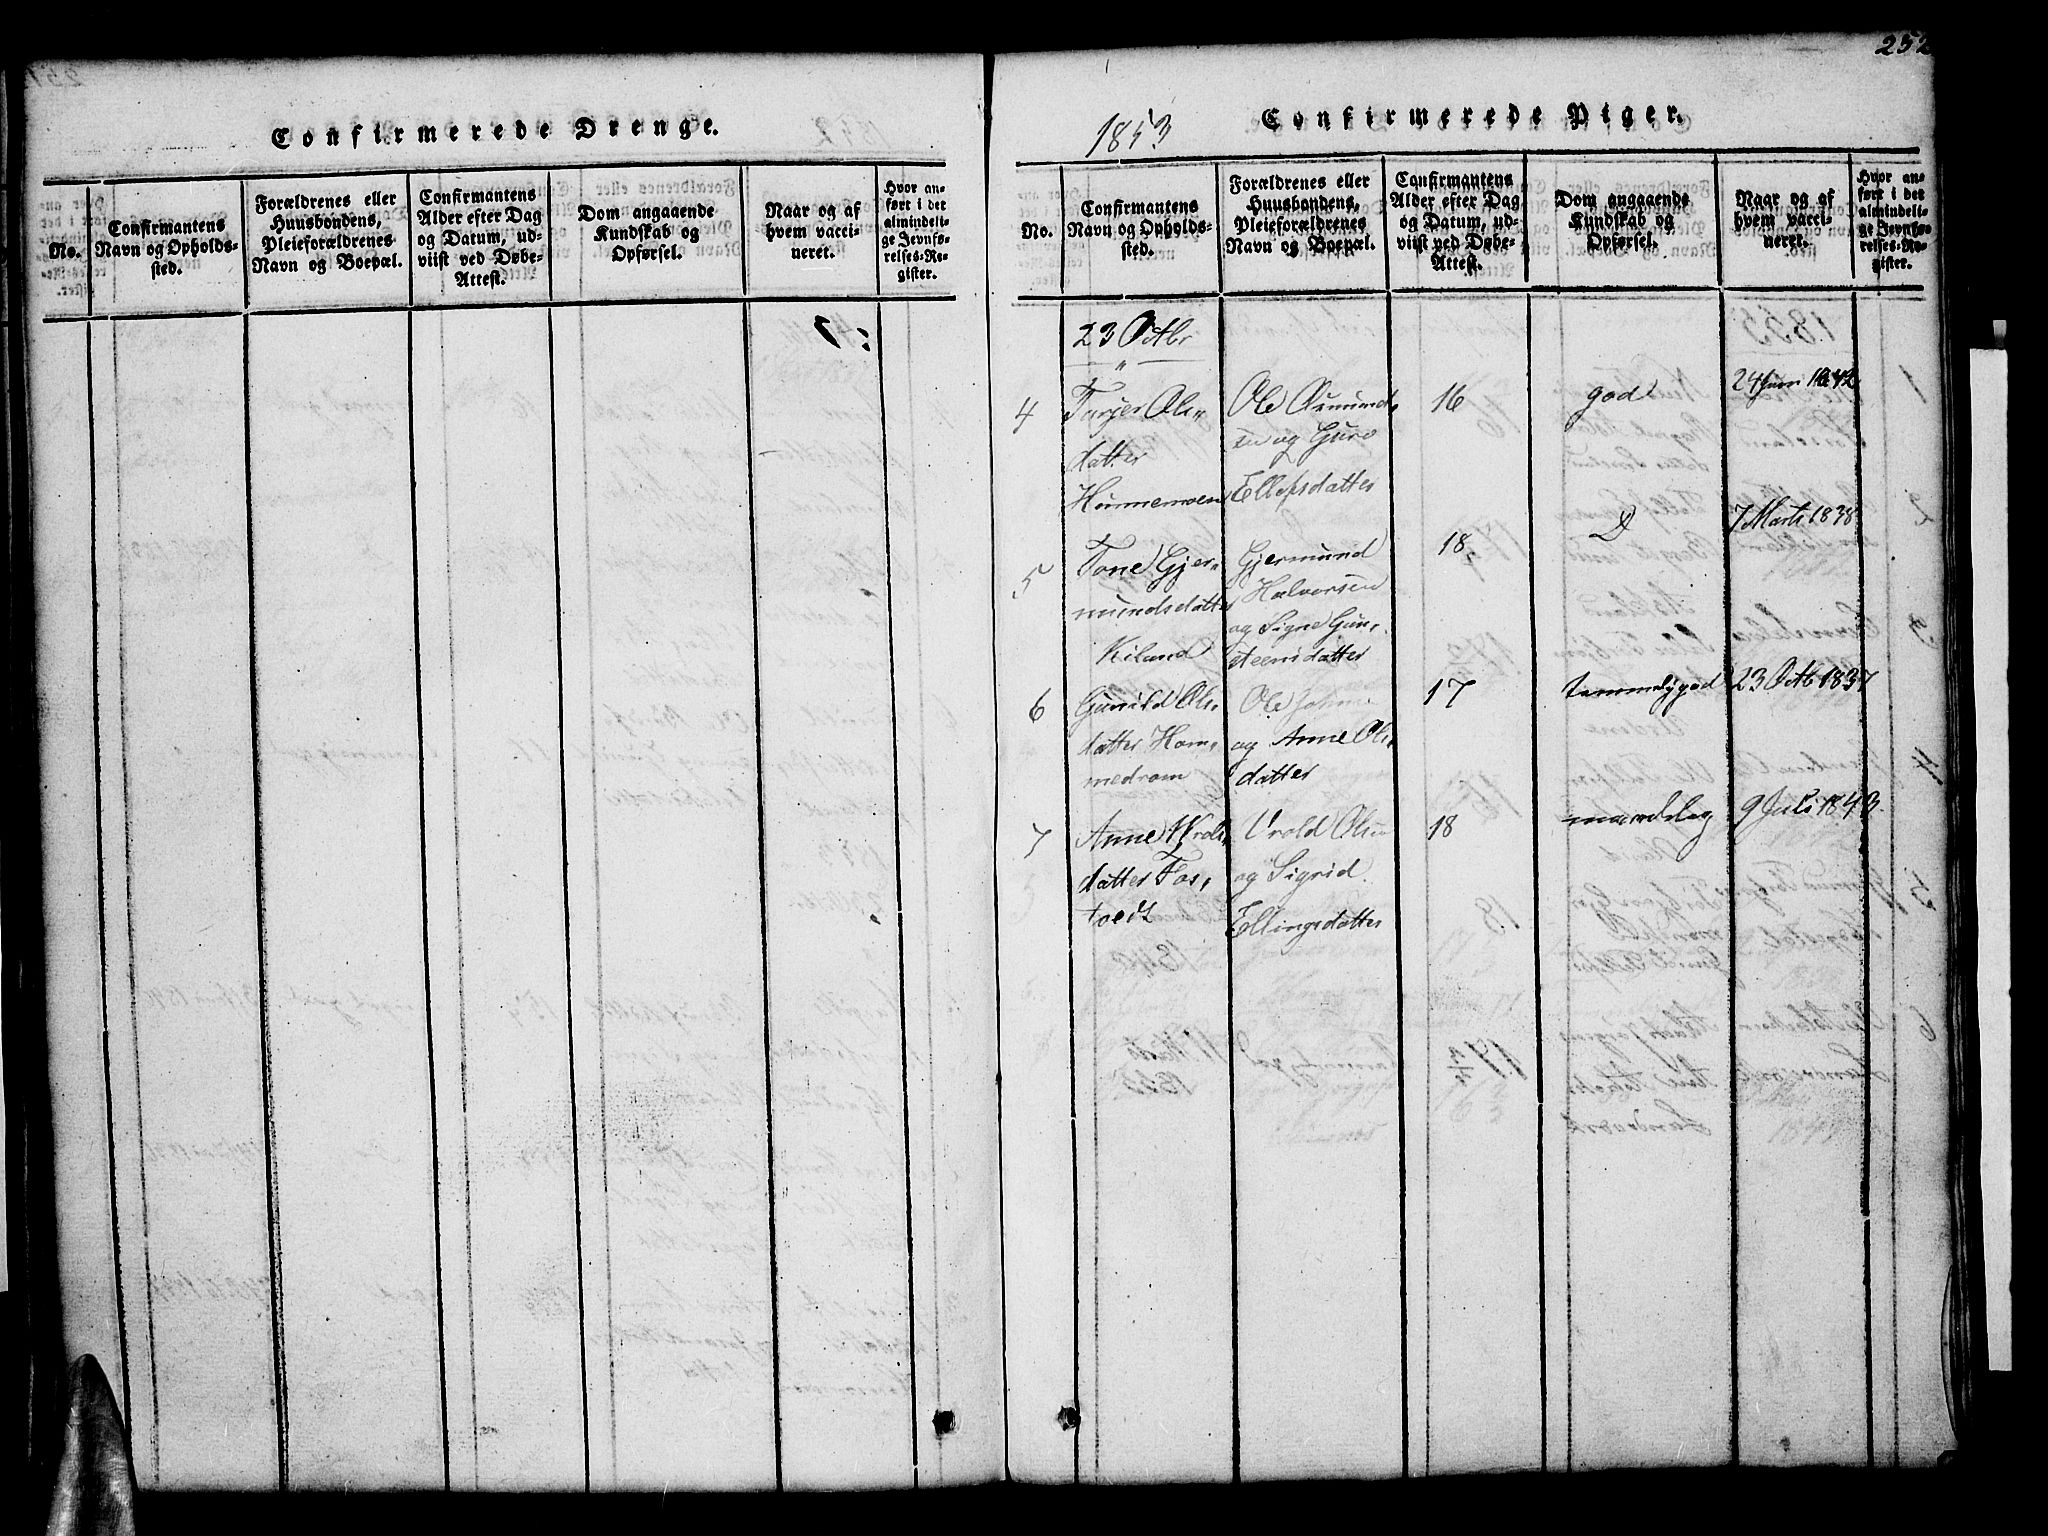 252
Confirmerede Drenge.
No.
Confirmantens
Navn og Opholds-
sted.
Forældrenes eller
Huusbondens,
Pleieforældrenes
Navn og Boepæl.
Confirmantens
Alder efter Dag
og Datum, ud-
viist ved Døbe-
Attest.
Dom angaaende
Kundskab og
Opførsel.
Naar og af
hvem vacci-
neret.
Hvor an-
ført i det
almindeli-
ge Jevnfø-
relses-Re-
gister.
1853
Confirmerede Piger.
No.
Confirmantens
Navn og Opholds-
sted.
Forældrenes eller
Huusbondens,
Pleieforældrenes
Navn og Boepæl.
Confirmantens
Alder efter Dag
og Datum, ud-
viist ved Døbe-
Attest.
Dom angaaende
Kundskab og
Opførsel.
Naar og af
hvem vacci-
neret.
Hvor an-
ført i det
almindeli-
ge Jevnfø-
relses-Re-
gister.
23 Octbr
4
Torjer Ols-
datter
Hummemoen
Ole Osmund-
sen og Guro
Ellefsdatter
16
god
24 Juni 1842
5
Tone Gjer-
mundsdatter
Kiland
Gjermund
Halvorsen
og Signe Gun-
steensdatter
18
D
7 Marts 1838
6
Gunild Ols-
datter Hom-
medrom
Ole
og Anne Ols-
datter
17
temmelig god
23 Octb 1837
7
Anne Wrols-
datter Tos-
tvedt
Vrold Olsen
og Sigrid
Ellingsdatter
18
maadelig
9 Juli 1843